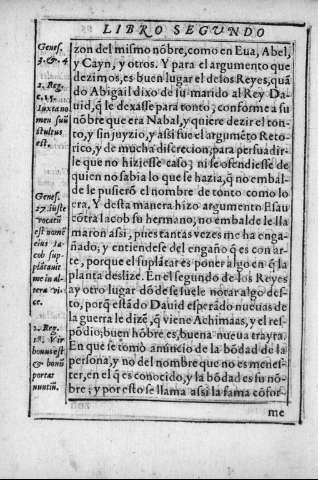 LIBRO SEGVNDO
zon del mismo nõbre, como en Eua, Abel,
y Cayn, y otros. Y para el argumento que
dezimos, es buen lugar el de los Reyes, quã
do Abigail dixo de su marido al Rey Da-
uid, q̃ le dexasse para tonto, conforme a su
nõbre que era Nabal, y quiere dezir el ton-
to, y sin juyzio, y assi fue el argumẽto Reto-
rico, y de mucha discrecion, para persuadir-
le que no hiziesse caso, ni se ofendiesse de
quien no sabia lo que se hazia, q̃ no embal-
de le pusierõ el nombre de tonto como lo
era. Y desta manera hizo argumento Esau
cõtra Iacob su hermano, no embalde le lla
maron assi, pues tantas vezes me ha enga-
ñado, y entiendese del engaño q̃ es con ar-
te, porque el suplãtar es poner algo en q̃ la
planta deslize. En el segundo de los Reyes
ay otro lugar dõde se suele notar algo des-
to, porq̃ estãdo Dauid esperãdo nueuas de
la guerra le dizẽ, q̃ viene Achimaas, y el res-
põdio, buen hõbre es, buena nueua trayra.
En que se tomò anuncio de la bõdad de la
persona, y no del nombre que no es menes-
ter, en el q̃ es conocido, y la bõdad es su nõ-
bre, y por esto se llama assi la fama cõfor-
me
Genes.
3. & 4
1. Reg.
c. 25.
Iuxta no-
men suũ
stultus
est.
Genes.
27. iuste
vocatũ
est nomẽ
eius Ia-
cob sup-
plãtauit
me in al-
tera vi-
ce.
2. Reg.
18. Vir
bonus est
& bonũ
portat
nuntiũ.